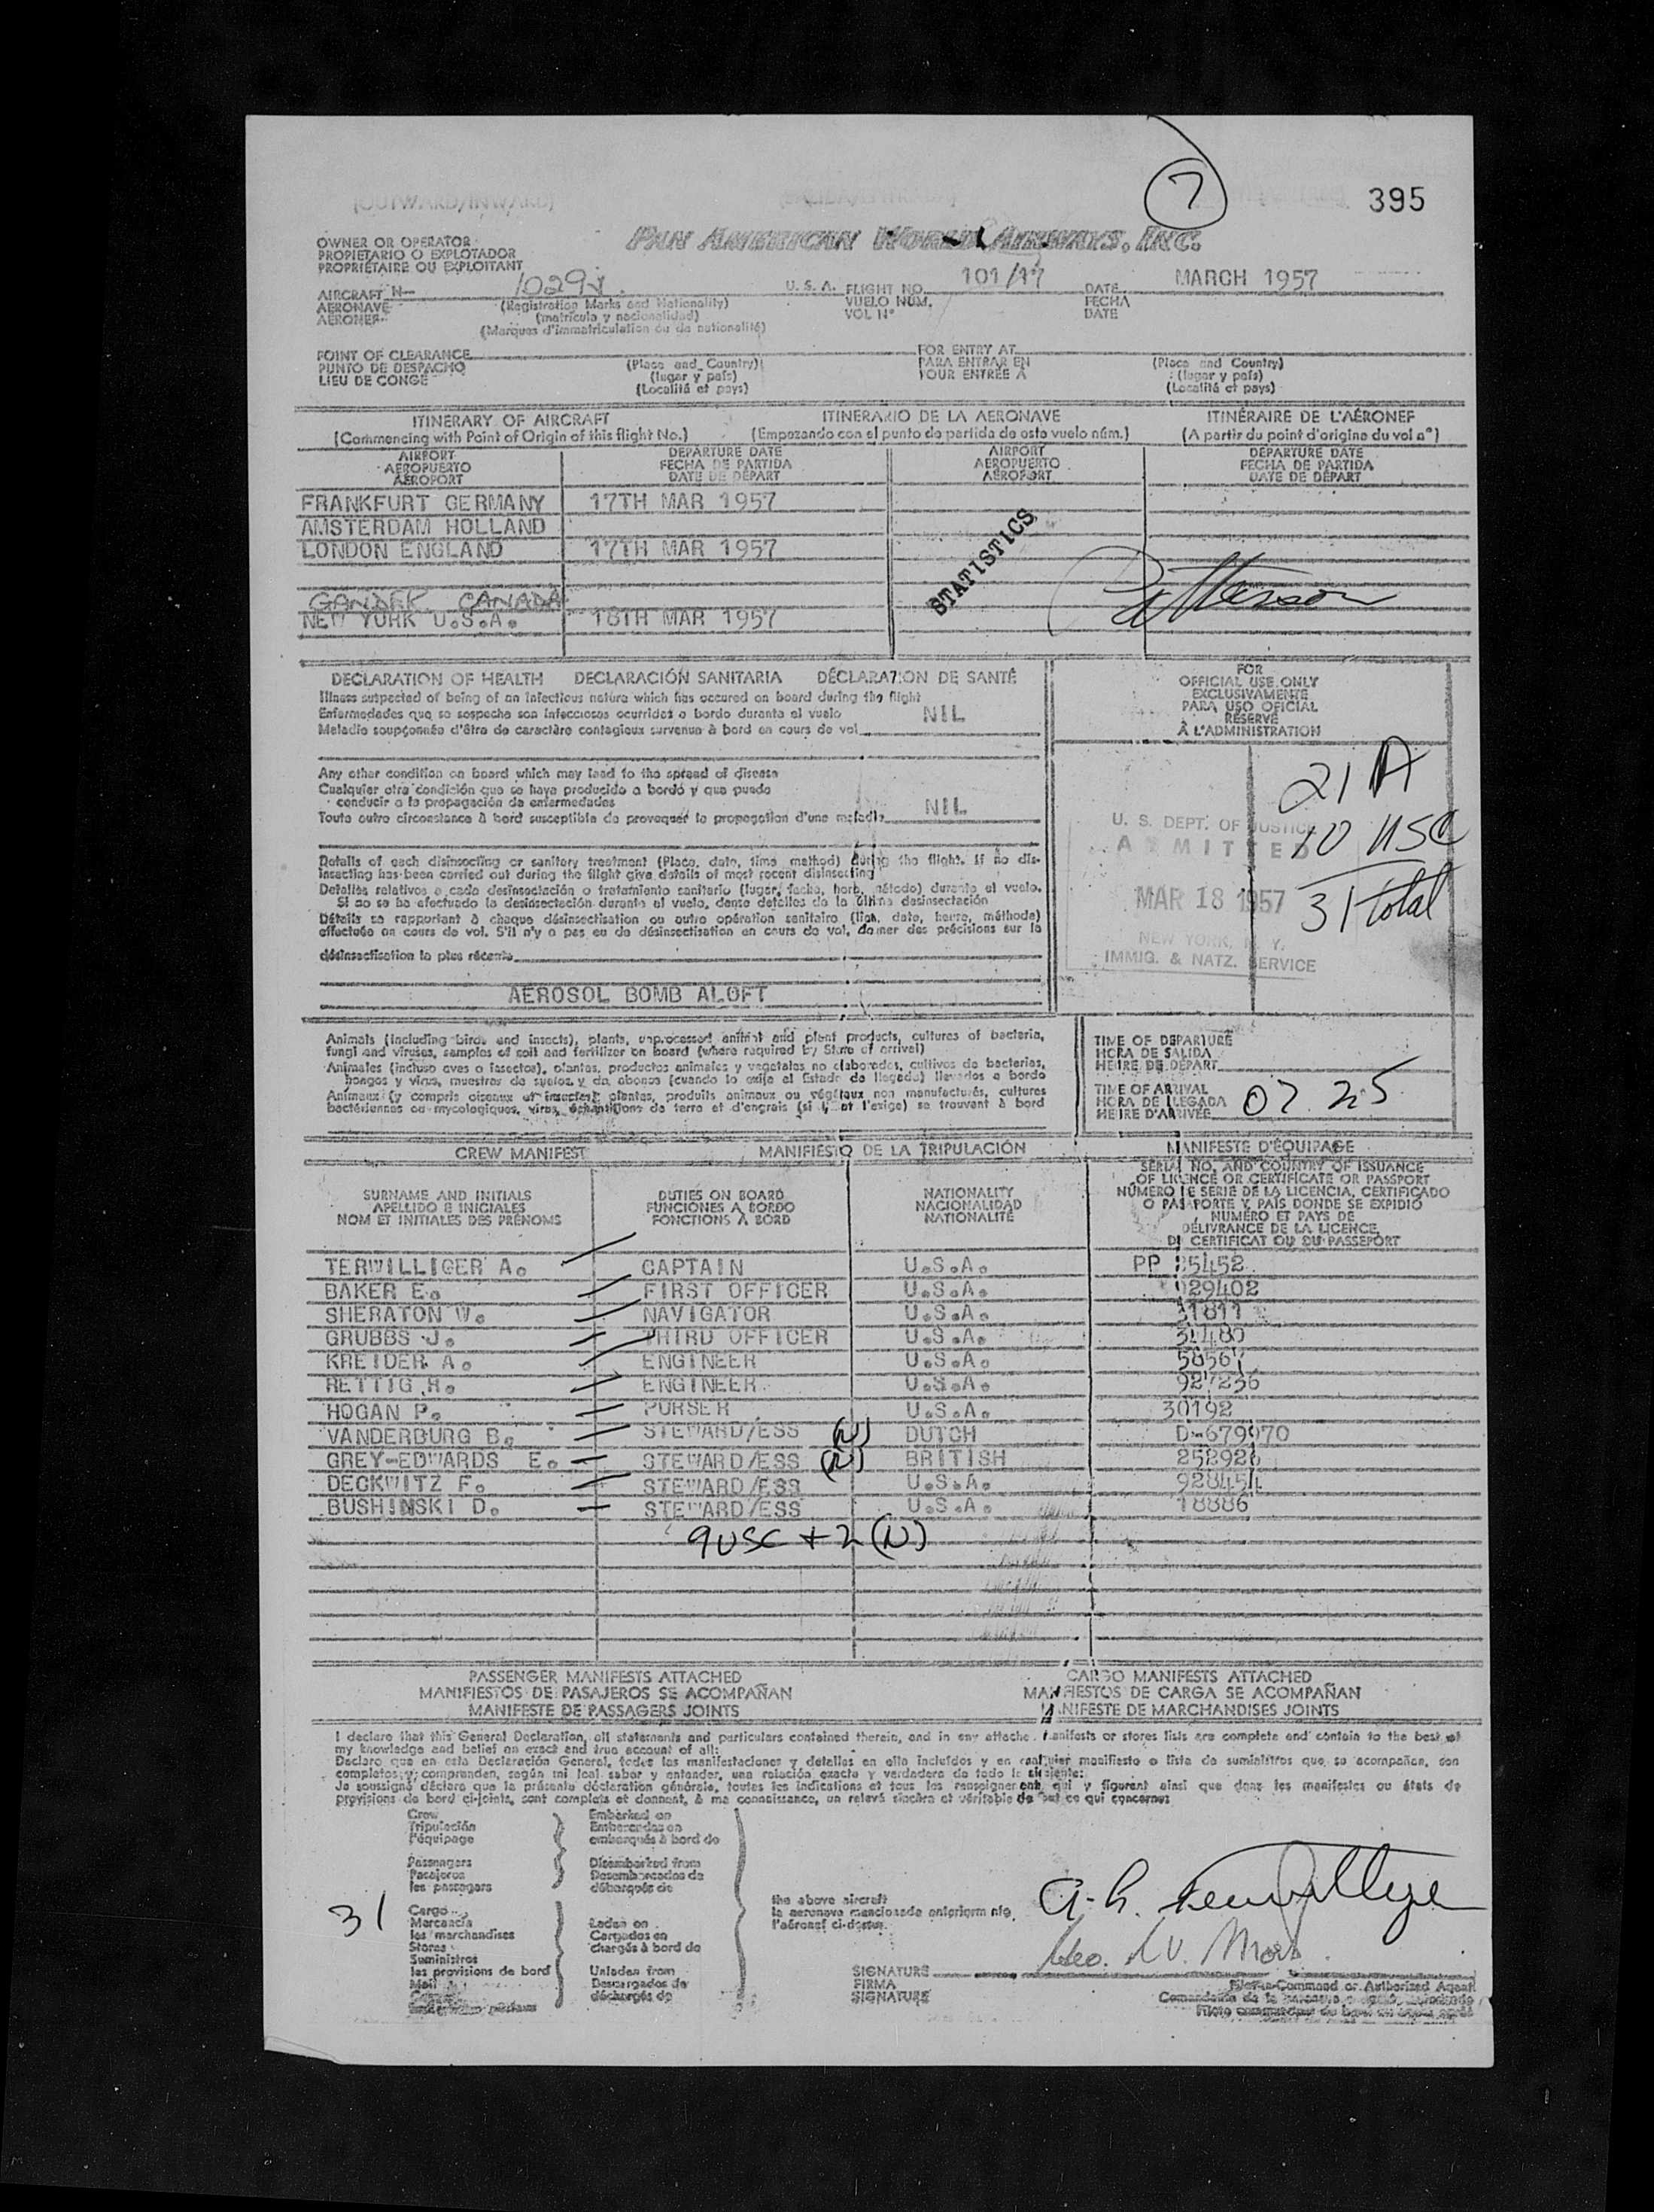 7
395
OWNER OR OPERATOR
PROPIETARIO O EXPLOTADOR
PROPRIÉTAIRE OU EXPLOITANT
PAN AMERICAN WORLD AIRWAYS, INC.
AIRCRAFT N-
AERONAVE
(Registration Marks and Nationality)
(matrícula y nacionalidad)
(Marques d'immatriculation ou de nationalité)
U.S.A. FLIGHT NO. 101/17
VUELO NUM.
VOL Nº
DATE MARCH 1957
FECHA
DATE
POINT OF CLEARANCE
PUNTO DE DESPACHO
LIEU DE CONGÉ
(Place and Country)
(lugar y país)
(Localité et pays)
FOR ENTRY AT
PARA ENTRAR EN
POUR ENTRÉE À
(Place and Country)
(lugar y país)
(Localité et pays)
ITINERARY OF AIRCRAFT ITINERARIO DE LA AERONAVE ITINÉRAIRE DE L'AÉRONEF
(Commencing with Point of Origin of this flight No.) (Empezando con el punto de partida de este vuelo núm.) (A partir du point d'origine du vol nº)
AIRPORT DEPARTURE DATE AIRPORT DEPARTURE DATE
AEROPUERTO FECHA DE PARTIDA AEROPUERTO FECHA DE PARTIDA
AÉROPORT DATE DE DÉPART AÉROPORT DATE DE DÉPART
FRANKFURT GERMANY 17TH MAR 1957
AMSTERDAM HOLLAND
LONDON ENGLAND 17TH MAR 1957
STATISTICS
GANDER CANADA
NEW YORK U.S.A. 18TH MAR 1957
DECLARATION OF HEALTH DECLARACIÓN SANITARIA DÉCLARATION DE SANTÉ
Illness suspected of being of an infectious nature which has occured on board during the flight
Enfermedades que se sospecha son infecciosas ocurridas a bordo durante el vuelo NIL
Maladie soupçonnée d'être de caractère contagieux survenue à bord en cours de vol
Any other condition on board which may lead to the spread of disease
Cualquier otra condición que se haya producido a bordo y que puede
conducir a la propagación de enfermedades
Toute autre circonstance à bord susceptible de provoquer la propagation d'une maladie NIL
Details of each disinsecting or sanitary treatment (Place, date, time, method) during the flight. If no dis-
insecting has been carried out during the flight give details of most recent disinsecting
Detalles relativos a cada desinsectación o tratamiento sanitario (lugar, fecha, hora, método) durante el vuelo.
Si no se ha efectuado la desinsectación durante el vuelo, dense detalles de la última desinsectación
Détails se rapportant à chaque désinsectisation ou autre opération sanitaire (lieu, date, heure, méthode)
effectuée en cours de vol. S'il n'y a pas eu de désinsectisation en cours de vol, donner des précisions sur la
désinsectisation la plus récente
AEROSOL BOMB ALOFT
FOR
OFFICIAL USE ONLY
EXCLUSIVAMENTE
PARA USO OFICIAL
RÉSERVÉ
À L'ADMINISTRATION
21 A
10 USC
31 total
U. S. DEPT. OF JUSTICE
ADMITTED
MAR 18 1957
NEW YORK, N. Y.
IMMIG. & NATZ. SERVICE
Animals (including birds and insects), plants, unprocessed animal and plant products, cultures of bacteria,
fungi and viruses, samples of soil and fertilizer on board (where required by State of arrival)
Animales (incluso aves o insectos), plantas, productos animales y vegetales no elaborados, cultivos de bacterias,
hongos y virus, muestras de suelos y de abonos (cuando lo exija el Estado de llegada) llevados a bordo
Animaux (y compris oiseaux et insectes), plantes, produits animaux ou végétaux non manufacturés, cultures
bactériennes ou mycologiques, virus, échantillons de terre et d'engrais (si l'Etat l'exige) se trouvant à bord
TIME OF DEPARTURE
HORA DE SALIDA
HEURE DE DÉPART
TIME OF ARRIVAL
HORA DE LLEGADA
HEURE D'ARRIVÉE 07 25
CREW MANIFEST MANIFIESTO DE LA TRIPULACIÓN MANIFESTE D'ÉQUIPAGE
SURNAME AND INITIALS
APELLIDO E INICIALES
NOM ET INITIALES DES PRÉNOMS
DUTIES ON BOARD
FUNCIONES A BORDO
FONCTIONS À BORD
NATIONALITY
NACIONALIDAD
NATIONALITÉ
SERIAL NO. AND COUNTRY OF ISSUANCE
OF LICENCE OR CERTIFICATE OR PASSPORT
NÚMERO DE SERIE DE LA LICENCIA, CERTIFICADO
O PASAPORTE Y PAÍS DONDE SE EXPIDIÓ
NUMÉRO ET PAYS DE
DÉLIVRANCE DE LA LICENCE,
DU CERTIFICAT OU DU PASSEPORT
TERWILLIGER A. CAPTAIN U.S.A. PP
BAKER E. FIRST OFFICER U.S.A.
SHERATON W. NAVIGATOR U.S.A.
GRUBBS J. THIRD OFFICER U.S.A.
KREIDER A. ENGINEER U.S.A.
RETTIG H. ENGINEER U.S.A. 927236
HOGAN P. PURSER U.S.A. 30192
VANDERBURG B. STEWARD/ESS (N) DUTCH D-679970
GREY-EDWARDS E. STEWARD/ESS (N) BRITISH
DECKWITZ F. STEWARD/ESS U.S.A. 928454
BUSHINSKI D. STEWARD/ESS U.S.A. 18886
9 USC + 2 (N)
PASSENGER MANIFESTS ATTACHED CARGO MANIFESTS ATTACHED
MANIFIESTOS DE PASAJEROS SE ACOMPAÑAN MANIFIESTOS DE CARGA SE ACOMPAÑAN
MANIFESTE DE PASSAGERS JOINTS MANIFESTE DE MARCHANDISES JOINTS
I declare that this General Declaration, all statements and particulars contained therein, and in any attached manifests or stores lists are complete and contain to the best of
my knowledge and belief an exact and true account of all:
Declaro que en esta Declaración General, todas las manifestaciones y detalles en ella incluidos y en cualquier manifiesto o lista de suministros que se acompañan, son
completos, y comprenden, según mi leal saber y entender, una relación exacta y verdadera de todo lo siguiente:
Je soussigné déclare que la présente déclaration générale, toutes les indications et tous les renseignements qui y figurent ainsi que dans les manifestes ou états de
provisions de bord ci-joints, sont complets et donnent, à ma connaissance, un relevé sincère et véritable de tout ce qui concerne:
Crew
Tripulación
l'équipage
Embarked on
Embarcados en
embarqués à bord de
Passengers
Pasajeros
les passagers
Disembarked from
Desembarcados de
débarqués de
31
Cargo
Mercancía
les marchandises
Stores
Suministros
les provisions de bord
Mail
Laden on
Cargados en
chargés à bord de
Unladen from
Descargados de
déchargés de
the above aircraft
la aeronave mencionada anteriormente
l'aéronef ci-dessus
SIGNATURE
FIRMA
SIGNATURE
Pilot-in-Command or Authorized Agent